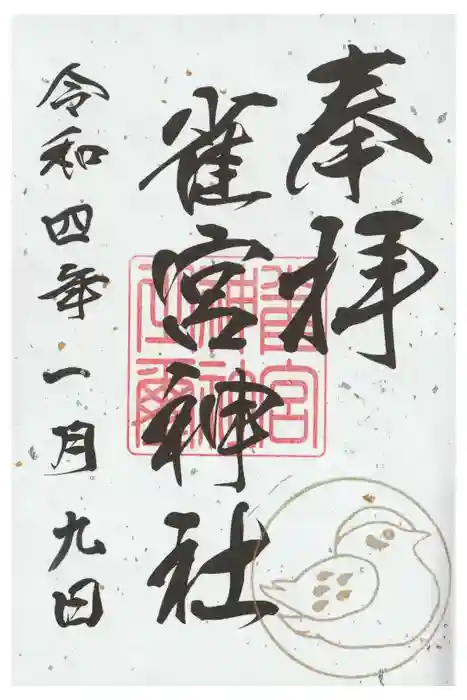 奉拝
雀宮神社
令和四年一月九日
雀宮
神社